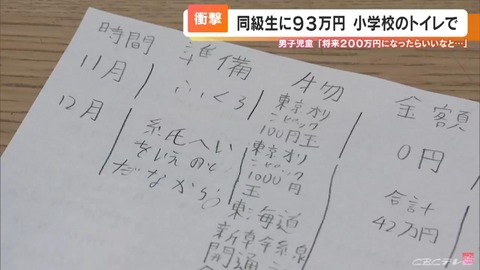 衝撃
同級生に93万円 小学校のトイレで
男子児童「将来200万円になったらいいなと…」
時間 準備 物 金額
11月
ふくろ
東京オリ
ンピック
100円玉
0円
12月
紙へい
をいえのと
だなから
東京オリ
ンピック
1000円
玉
東海道
新幹線
開通
合計
42万円
CBCテレビ